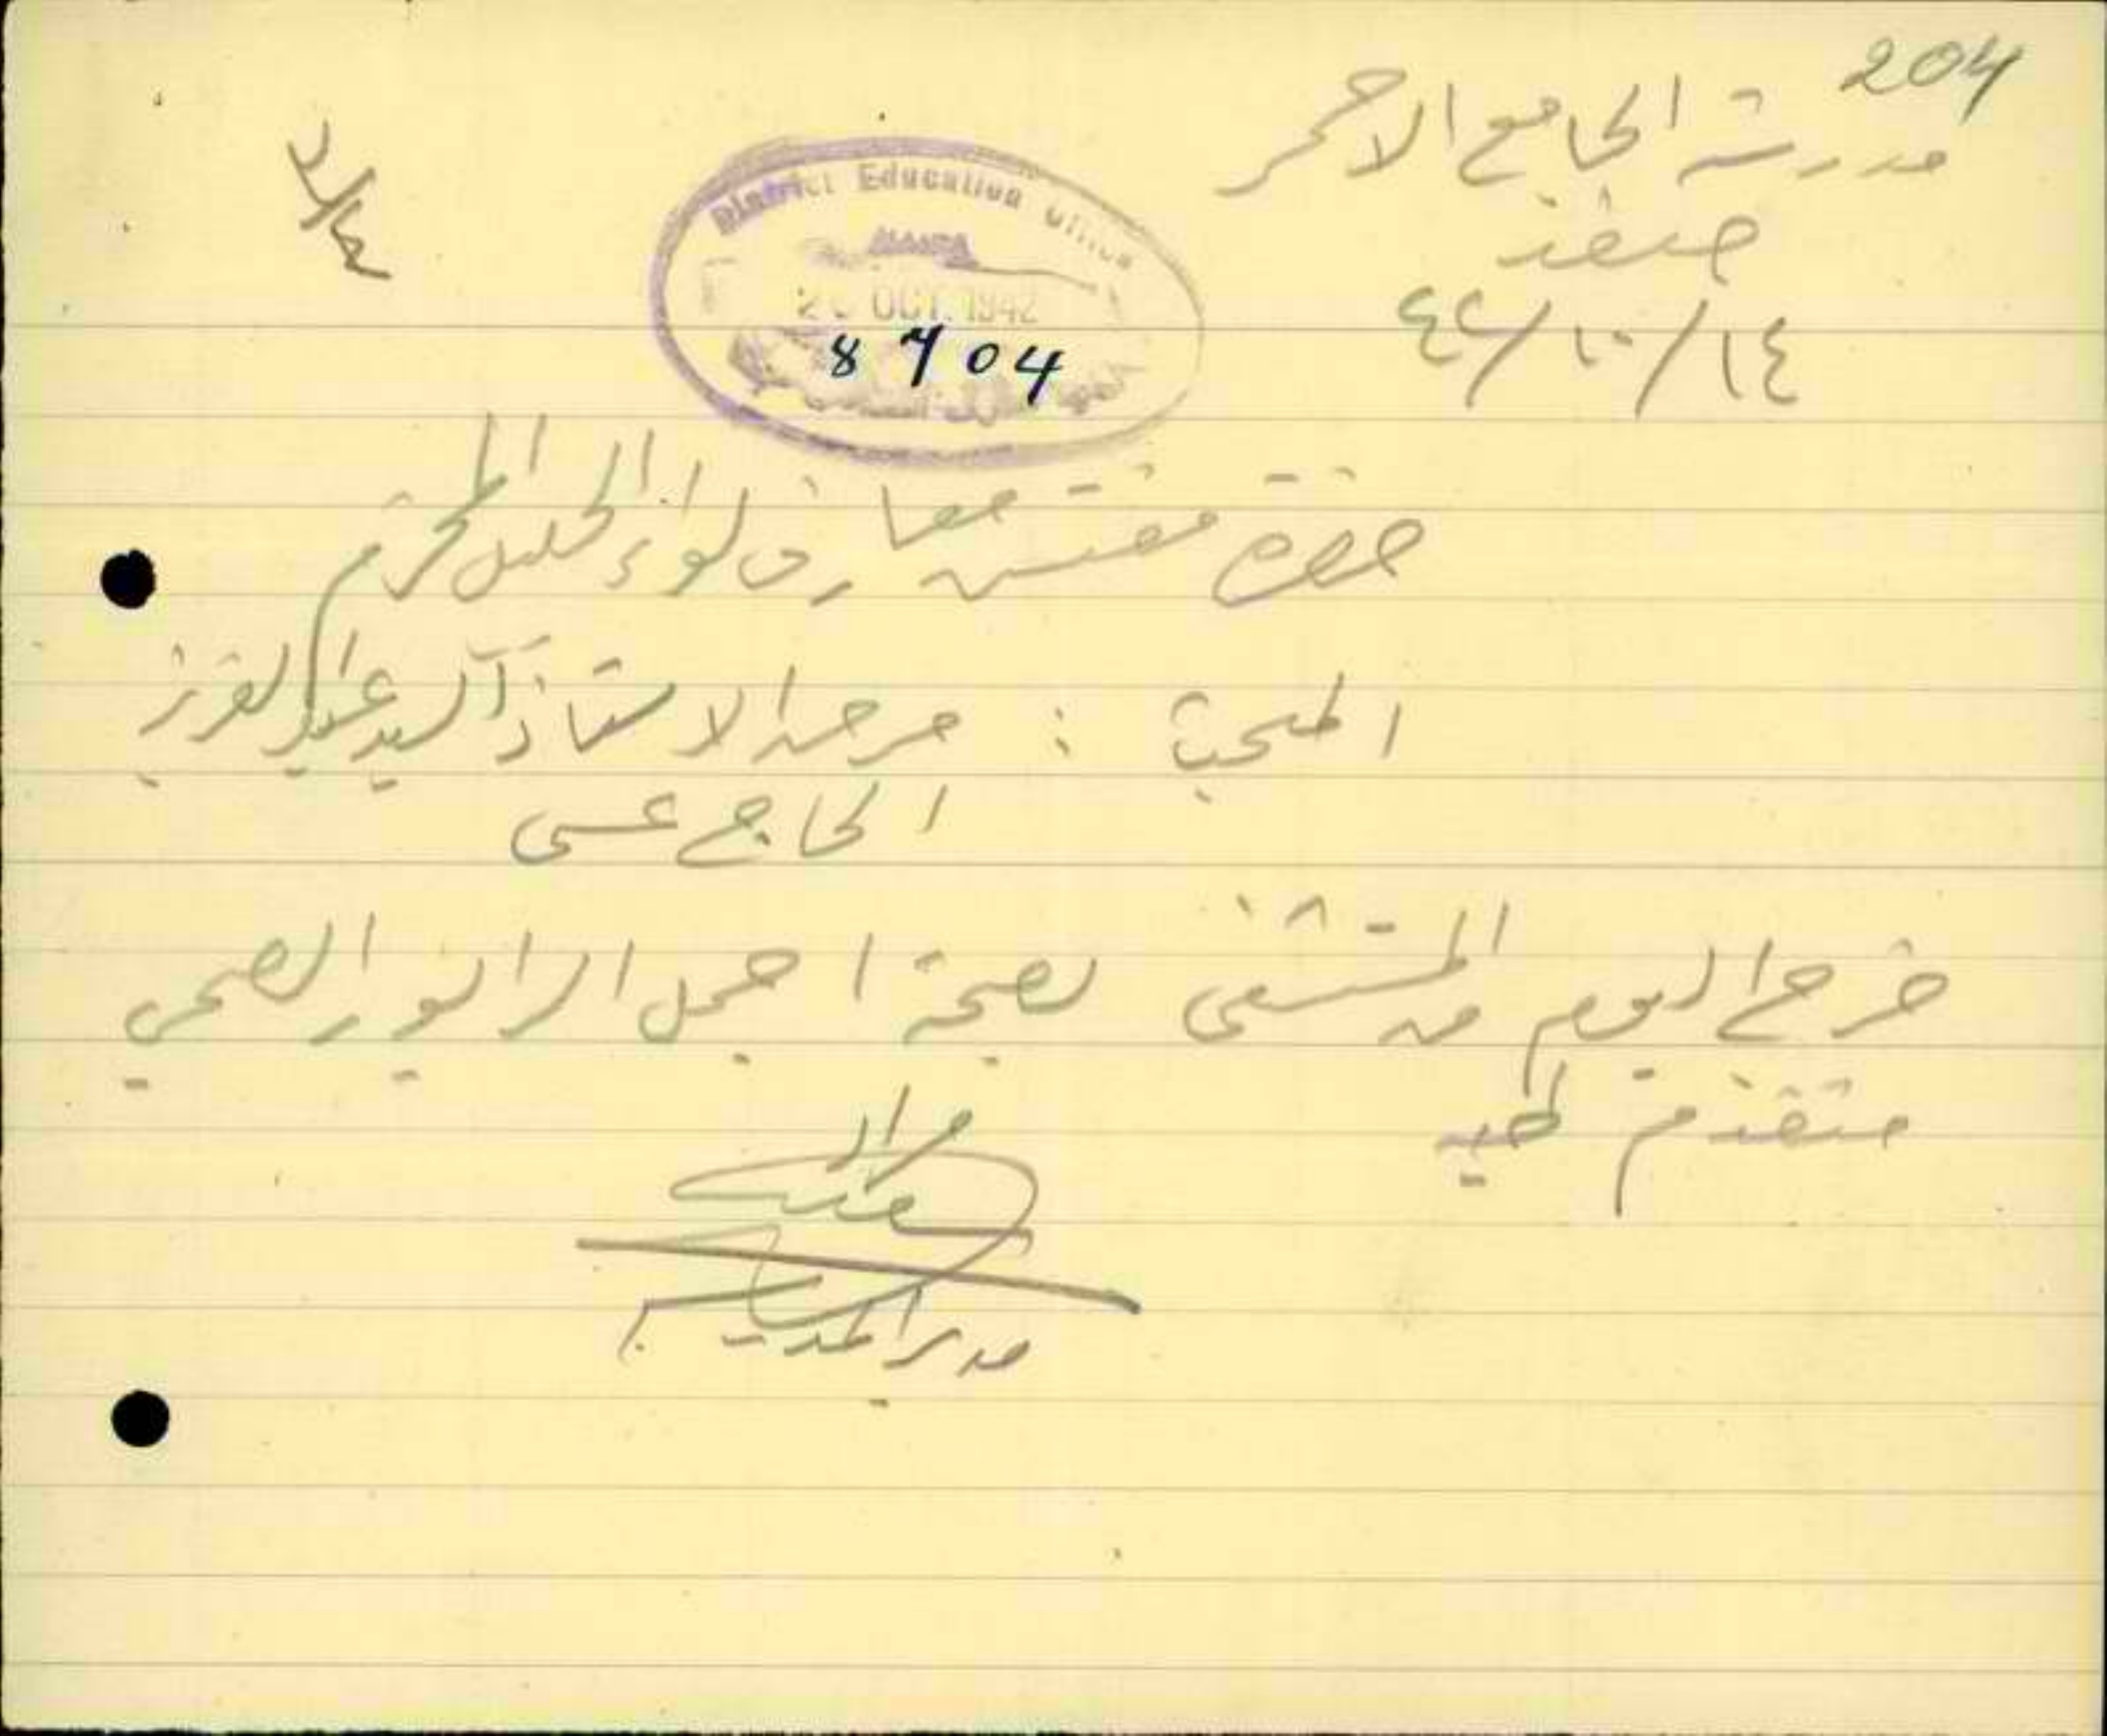 204
مدرسة الجامع الاحمر
صفد
١٤/١٠/٤٢
District Education Office
2 OCT. 1942
8704
حضرة مفتش معارف لواء الجليل المحترم
المبحث : مرض الاستاذ السيد عبد العزيز
الحاج عيسى
خرج اليوم من المستشفى بصحة اجمل الرابور الصحي
ستقدم طيه
مدير المدرسة